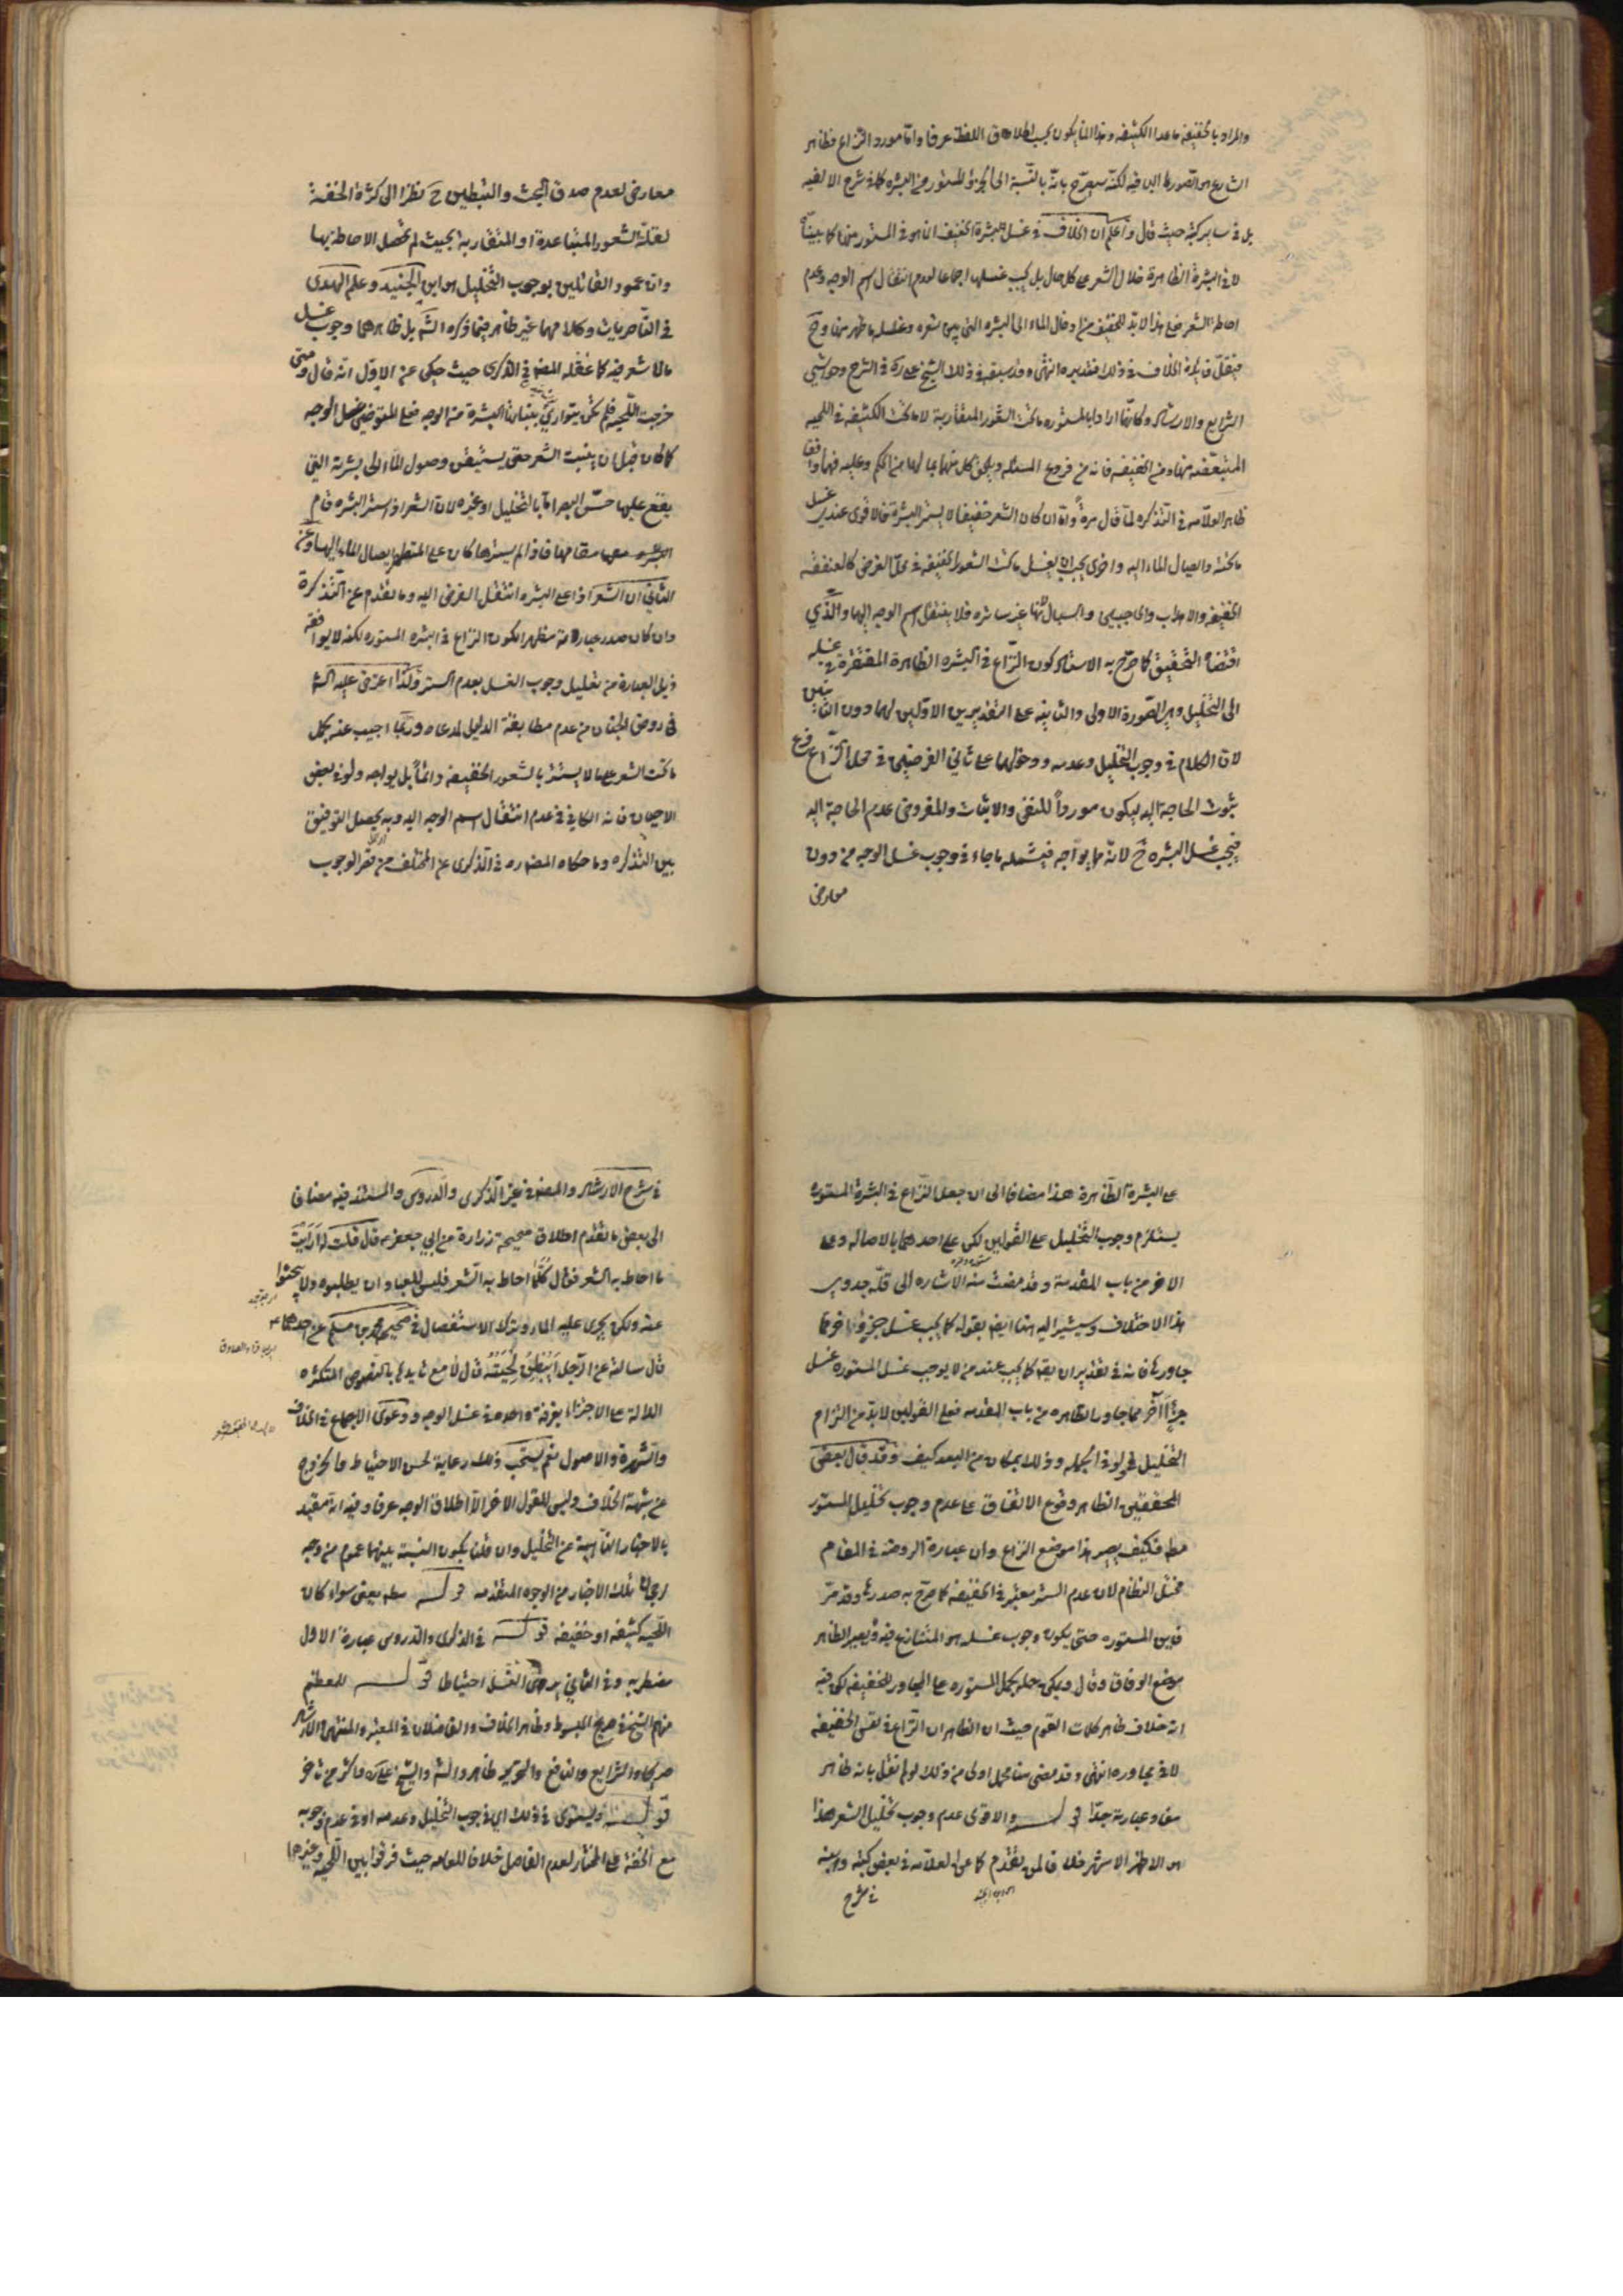 والمراد بالخفيفة ما عدا الكثيفة وهذا انما يكون بحسب اطلاق اللفظ عرفا واما مورد النزاع فظاهر
الشارع هو الصورة الباقية لكنه سيصرح بانه بالنسبة الى الجزء المستور من البشرة كما في شرح الالفيه
بل في ساير كتبه حيث قال واعلم ان الخلاف في غسل البشرة الخفيف انما هو في المستور منها كما بيناه
لا في البشرة الظاهرة خلال الشعر على كل حال بل يجب غسلها اجماعا لعدم انتقال اسم الوجه وعدم
احاطة الشعر فعلى هذا لا بد للمخفف من ادخال الماء الى البشره التي بين شعره وغسل ما ظهر منها وح
فيقل فايدة الخلاف في ذلك فتدبره انتهى وقد سبقه في ذلك الشيخ علي ره في الشرح وحواشي
الشرايع والارشاد وكانهما ارادا بالمستوره ما تحت الشعور المتقاربة لا ما تحت الكثيفه في اللحيه
المتبعضه منها ومن الخفيفه فانه من فروع المسئله ويلحق كل منهما بما لها من الحكم وعليه فهما وافقا
ظاهر العلامه في التذكره لما قال مرة وان كان الشعر خفيفا لا يستر البشرة فالاقوى عندي غسل
ما تحته وايصال الماء اليه واخرى يجب ان يغسل ما تحت الشعور الخفيفه في محل الفرض كالعنفقه
الخفيفه والاهداب والحاجبين والسبال لانها غير ساتره فلا ينتقل اسم الوجه اليها والذي
اقتضاه التحقيق كما صرح به الاستاد كون النزاع في البشره الظاهرة المفتقرة في غسله
الى التخليل وهو الصورة الاولى والثانيه على التقديرين الاولين لهما دون الثانيين
لان الكلام في وجوب التخليل وعدمه ودخولهما على ثاني الفرضين في محل النزاع فرع
ثبوت الحاجة اليه ليكون موردا للنفي والاثبات والمفروض عدم الحاجة اليه
فيجب غسل البشره ح لانه مما يواجه فيشمله ما جاء في وجوب غسل الوجه من دون
معارض
معارض لعدم صدق البحث والتبطين ح نظرا الى كثرة الخفة
لقلة الشعور المتباعدة او المتقاربة بحيث لم تحصل الاحاطة بها
وان عمود القائلين بوجوب التخليل هو ابن الجنيد وعلم الهدى
في الناصريات وكلامهما غير ظاهر فيما ذكره الش بل ظاهرهما وجوب غسل
ما لا شعر فيه كما عقله المص في الذكرى حيث حكى عن الاول انه قال ومتى
خرجت اللحيه فلم تكن متوارية بنباتها البشرة من الوجه فعلى المتوضي غسل الوجه
كما كان قبل ان ينبت الشعر حتى يستيقن وصول الماء الى بشرته التي
يقع عليها حس البصر اما بالتخليل او غيره لان الشعر اذا ستر البشره قام
مقامها فاذا لم يسترها كان على المتطهر ايصال الماء اليها وعن
الثاني ان الشعر اذا على البشره انتقل الفرض اليه وما تقدم عن التذكرة
وان كان صدر عبارته مظهرا لكون النزاع في البشره المستوره لكنه لا يوافقه
ذيل العبارة من تعليل وجوب الغسل بعدم الستر ولذا اعترض عليه الش
في روض الجنان من عدم مطابقة الدليل لمدعاه وربما اجيب عنه بحمل
ما تحت الشعر على ما لا يستتر بالشعور الخفيفه دائما بل يواجه ولو في بعض
الاحيان فانه الكافي في عدم انتقال اسم الوجه اليه وبه يحصل التوفيق
بين التذكره وما حكاه المص ره في الذكرى عن المختلف من قصر الوجوب
على البشرة الظاهرة هذا مضافا الى ان جعل النزاع في البشرة المستوره
يستلزم وجوب التخليل على القولين لكن على احدهما بالاصاله وعلى
الاخر من باب المقدمة وقد مضت منه الاشاره الى قلة جدوى
هذا الاختلاف وسيشير اليه هنا ايضا بقوله كما يجب غسل جزء اخر مما
جاورها فانه في تقدير ان يقه كما يجب عند من لا يوجب غسل المستوره غسل
جزء آخر مما جاور الظاهره من باب المقدمه فعلى القولين لا بد من التزام
التخليل ولو في الجمله وذلك بمكان من البعد كيف وقد قال بعض
المحققين الظاهر وقوع الاتفاق على عدم وجوب تخليل المستور
مطه فكيف يصير هذا موضع النزاع وان عبارة الروضه في المقام
مختل النظام لان عدم الستر معتبر في الخفيفه كما صرح به صدرها وقد مر
فاين المستوره حتى يكون وجوب غسله هو المتنازع فيه ويصير الظاهر
موضع الوفاق وقال ويمكن حمله بحمل المستوره على المجاور للخفيفه لكن فيه
انه خلاف ظاهر كلمات القوم حيث ان الظاهر ان النزاع في نفس الخفيفه
لا في مجاوره انتهى وقد مضى منا محمل اولى من ذلك لو لم نقل بانه ظاهر
مفاد عبارته جدا قوله والاقوى عدم وجوب تخليل الشعر هذا
هو الاظهر الاشهر خلافا لمن تقدم كما عن العلامه في بعض كتبه وابنه
في شرح
في شرح الارشاد والمص في غير الذكرى والدروس والمستند فيه مضافا
الى بعض ما تقدم اطلاق صحيحة زرارة عن ابي جعفر ع قال قلت له ارايت
ما احاط به الشعر فقال كلما احاط به الشعر فليس للعباد ان يطلبوه ولا يبحثوا
عنه ولكن يجرى عليه الماء وترك الاستفصال في صحيح محمد بن مسلم عن احدهما ع
قال سالته عن الرجل ايبطن لحيته قال لا مع تايدها بالنصوص المتكثره
الدالة على الاجتزاء بغرفة واحده في غسل الوجه ودعوى الاجماع في الخلاف
والشهرة والاصول نعم يستحب ذلك رعاية لحسن الاحتياط والخروج
عن شبهة الخلاف وليس للقول الاخر الا اطلاق الوجه عرفا وفيه انه مقيد
بالاخبار الناهية عن التخليل وان قلنا بكون النسبة بينهما عموم من وجه
لرجحان تلك الاخبار من الوجوه المتقدمه قوله مطه يعني سواء كان
اللحيه كثيفه او خفيفه قوله في الذكرى والدروس عبارة الاول
مضطربه وفي الثاني يرجح الغسل احتياطا قوله للمعظم
منهم الشيخ في صريح المبسوط وظاهر الخلاف والفاضلان في المعتبر والمنتهى والارشاد
صريحا والشرايع والنافع والتحرير ظاهرا والش والشيخ علي ره واكثر من تاخر
قوله ويستوى في ذلك اي في وجوب التخليل وعدمه او في عدم وجوبه
مع الخفة على المختار لعدم الفاصل خلافا للعامه حيث فرقوا بين اللحيه وغيرها